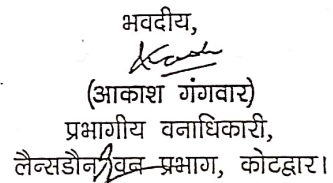 भवदीय,
(आकाश गंगवार)
प्रभागीय वनाधिकारी,
लैन्सडौन वन प्रभाग, कोटद्वार।